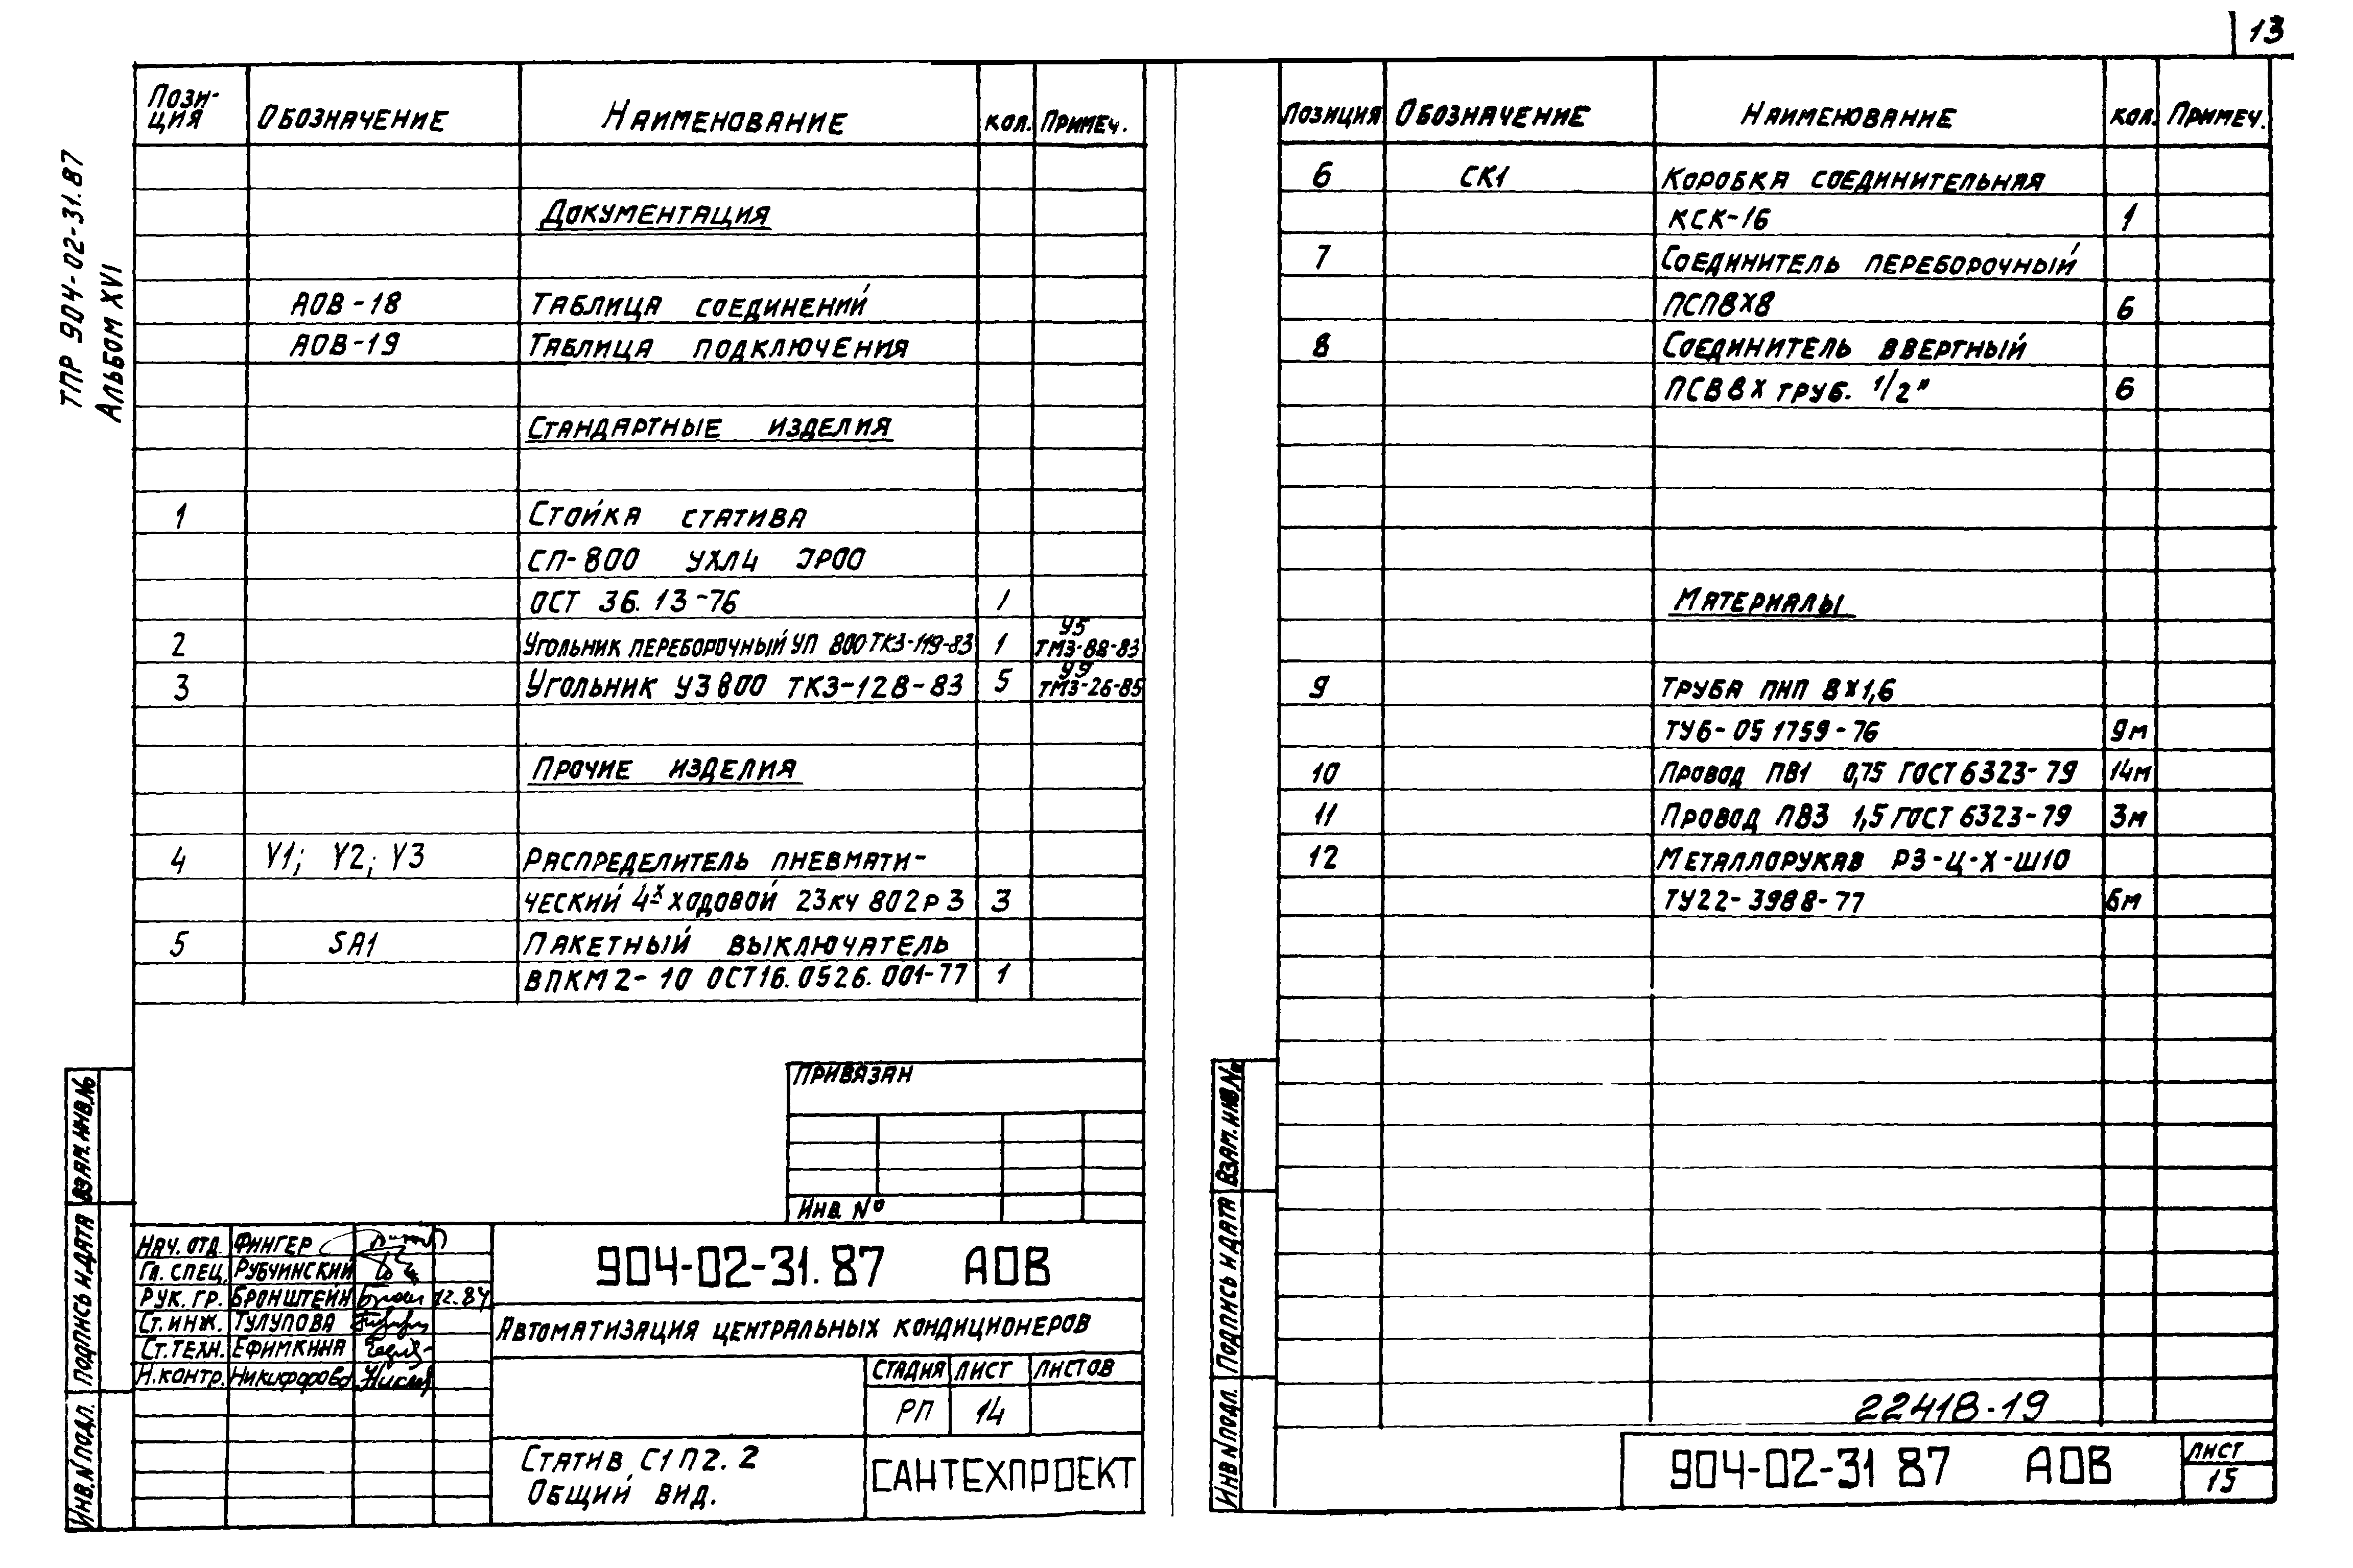 13
ТПР 904-02-31.87
АЛЬБОМ XVI
ПОЗИ-
ЦИЯ ОБОЗНАЧЕНИЕ НАИМЕНОВАНИЕ КОЛ. ПРИМЕЧ.
ДОКУМЕНТАЦИЯ
АОВ-18 ТАБЛИЦА СОЕДИНЕНИЙ
АОВ-19 ТАБЛИЦА ПОДКЛЮЧЕНИЯ
СТАНДАРТНЫЕ ИЗДЕЛИЯ
1 СТОЙКА СТАТИВА
СП-800 УХЛ4 IP00
ОСТ 36.13-76 1
2 УГОЛЬНИК ПЕРЕБОРОЧНЫЙ УП 800 ТК3-119-83 1 У5 ТМ3-88-83
3 УГОЛЬНИК УЗ 800 ТК3-128-83 5 У9 ТМ3-26-85
ПРОЧИЕ ИЗДЕЛИЯ
4 Y1; Y2; Y3 РАСПРЕДЕЛИТЕЛЬ ПНЕВМАТИ-
ЧЕСКИЙ 4х ХОДОВОЙ 23КЧ 802Р 3 3
5 SA1 ПАКЕТНЫЙ ВЫКЛЮЧАТЕЛЬ
ВПКМ2-10 ОСТ16.0526.001-77 1
ПРИВЯЗАН
ИНВ. №
НАЧ. ОТД. ФИНГЕР
ГЛ. СПЕЦ. РУБЧИНСКИЙ
РУК. ГР. БРОНШТЕЙН 12.87
СТ. ИНЖ. ТУЛУПОВА
СТ. ТЕХН. ЕФИМКИНА
Н. КОНТР. НИКИФОРОВА
904-02-31.87 АОВ
АВТОМАТИЗАЦИЯ ЦЕНТРАЛЬНЫХ КОНДИЦИОНЕРОВ
СТАДИЯ ЛИСТ ЛИСТОВ
РП 14
СТАТИВ С1П2.2
ОБЩИЙ ВИД.
САНТЕХПРОЕКТ
ВЗАМ. ИНВ.№
ПОДПИСЬ И ДАТА
ИНВ.№ ПОДЛ.
ПОЗИЦИЯ ОБОЗНАЧЕНИЕ НАИМЕНОВАНИЕ КОЛ. ПРИМЕЧ.
6 СК1 КОРОБКА СОЕДИНИТЕЛЬНАЯ
КСК-16 1
7 СОЕДИНИТЕЛЬ ПЕРЕБОРОЧНЫЙ
ПСП8Х8 6
8 СОЕДИНИТЕЛЬ ВВЕРТНЫЙ
ПСВ8Х ТРУБ. 1/2" 6
МАТЕРИАЛЫ
9 ТРУБА ПНП 8Х1,6
ТУ6-05 1759-76 9м
10 ПРОВОД ПВ1 0,75 ГОСТ 6323-79 14м
11 ПРОВОД ПВ3 1,5 ГОСТ 6323-79 3м
12 МЕТАЛЛОРУКАВ РЗ-Ц-Х-Ш10
ТУ22-3988-77 6м
22418-19
904-02-31 87 АОВ
ЛИСТ
15
ВЗАМ. ИНВ.№
ПОДПИСЬ И ДАТА
ИНВ № ПОДЛ.